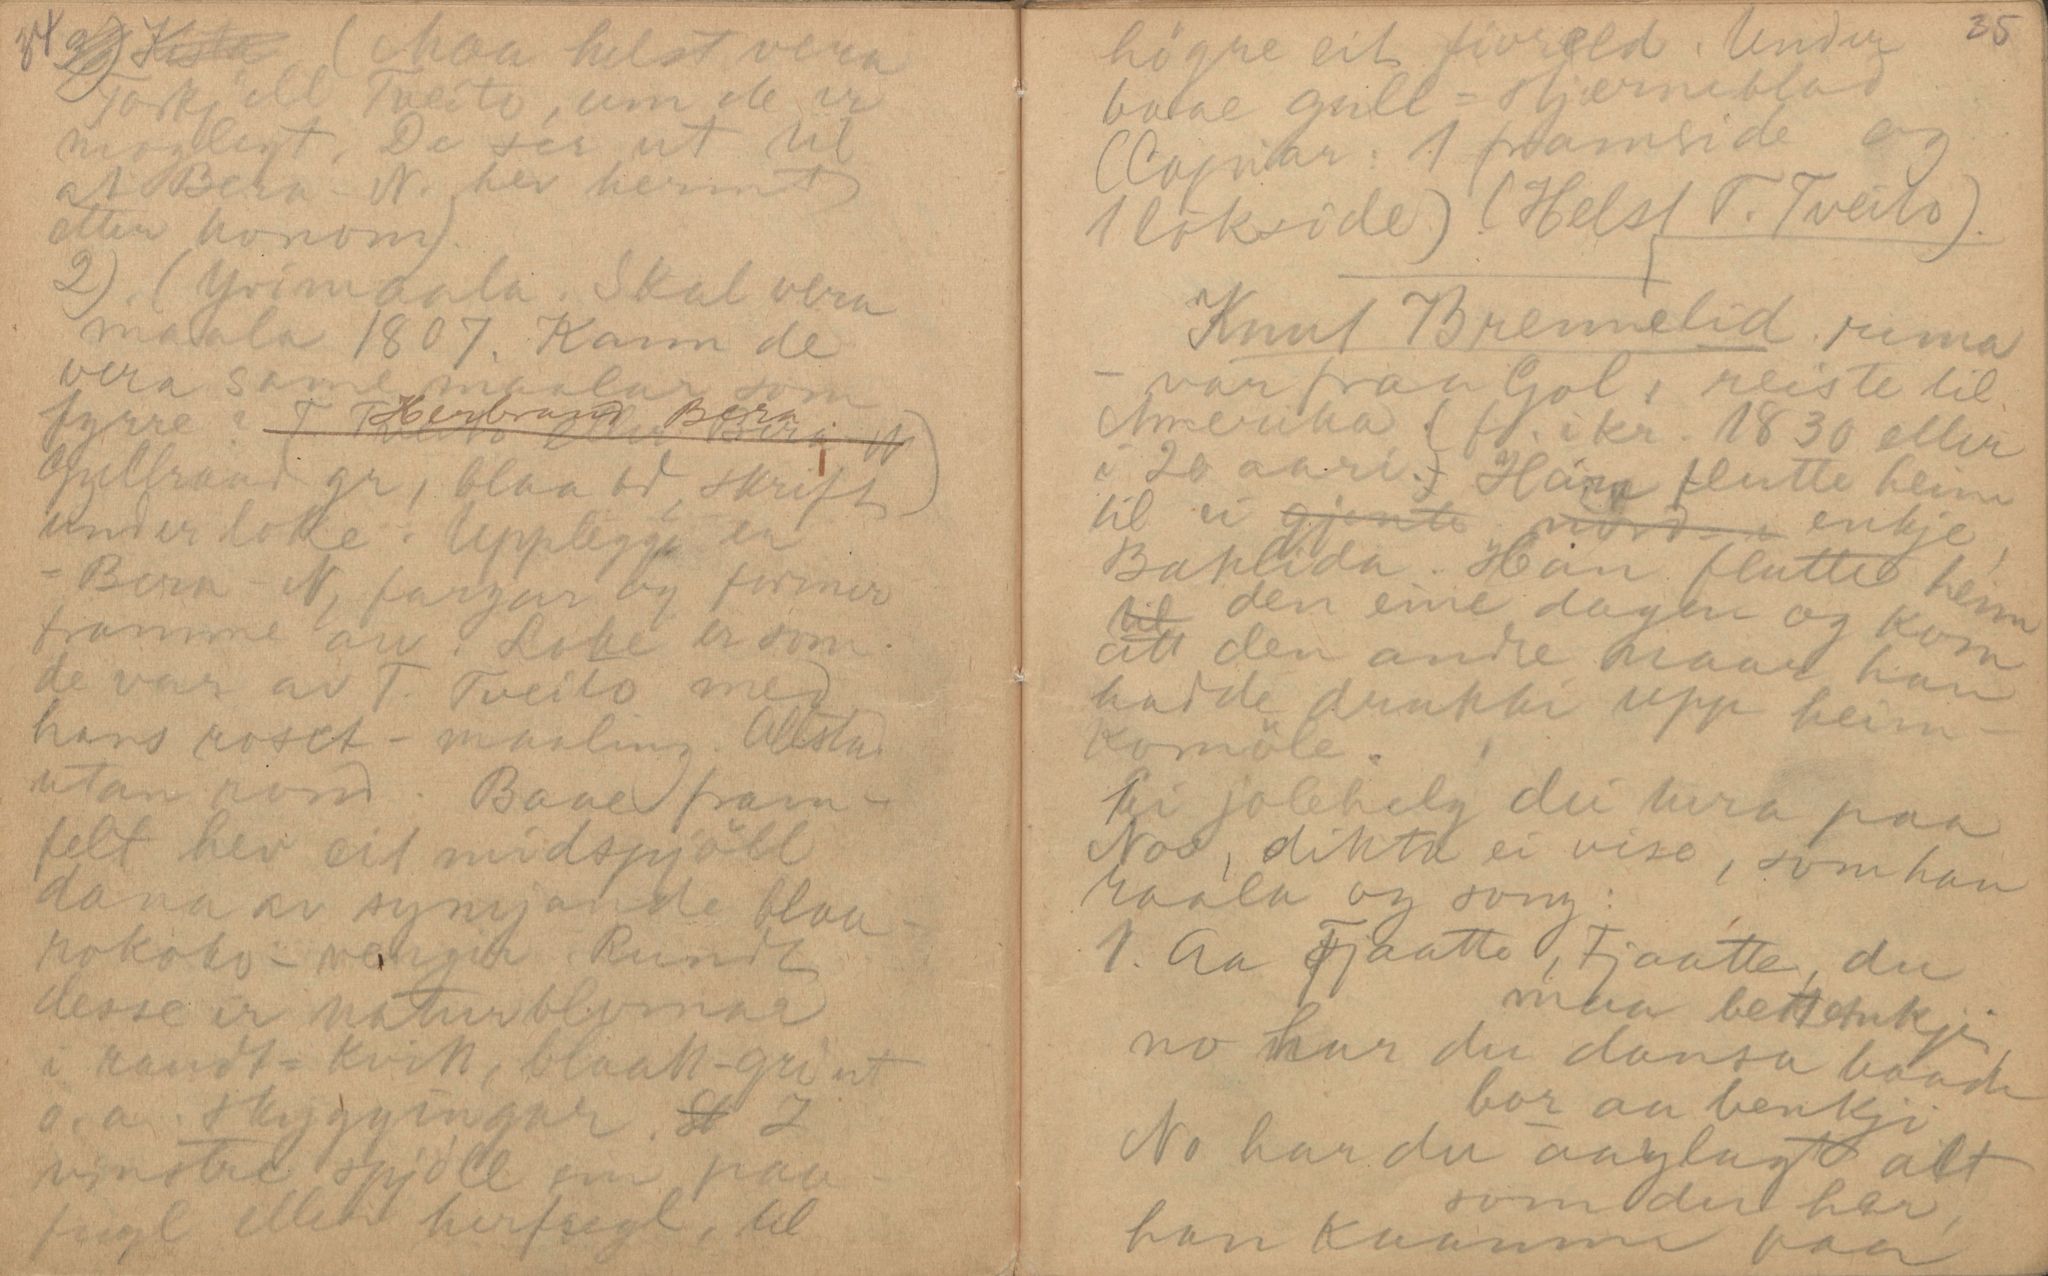 34
3) Kista (Maa helst vera
Torkjell Tveito, um de er
moglegt. De ser ut til
at Bera-N. hev hermt
etter honom).
2). (Yvimaala. Skal vera
maala 1807. Kann de
vera same maalar som
fyrre? (T. Tveito eller Bera-N)
Herbrand Bera
Gullraad gr, blaa bd, skrift
under loke. Upplegg er
=Bera-N, fargar og former
framme av. Loke er som
de var av T. Tveito med
hans roset-maaling. Altstad
utan rond. Baae fram-
felt hev eit midspjöll
dana av synyjande blaa-
rokoko-vengir. Rundt
desse er naturblomar
i raudt=kvitt, blaatt-grönt
o.a. skyggingar. I
vinstre spjöll ein paa-
fugl eller herfugl, til
35
högre eit fivreld. Under
baae gull=stjerneblad
(Copiar: 1 framside og
1 lokside) (Helst T. Tveito).
Knut Brennelid. rima
- var fraa Gol, reiste til
Amerika (f. ikr. 1830 eller
i 20 aari.) Han flutte heim
til ei gjente nord i enkje,
Baklida. Han flutte heim
til den eine dagen og kom
att den andre naar han
hadde drukki upp heim-
komöle.
Ei jolehelg dei tura paa
Noo, dikta ei vise, som han
raala og song:
1. Aa Tjaatte, Tjaatte, du
maa bettenkji
no har du dansa baade
bor aa benkji
No har du aaylagt alt
som du har,
han kaamme paa